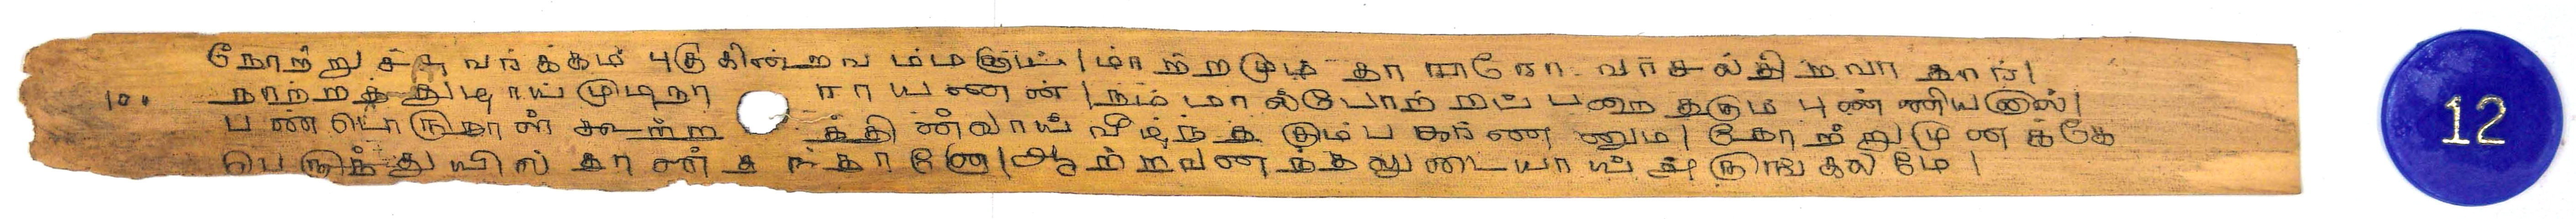 நோற்றுச்சுவர்க்கம் புகுகின்றவம்மனாய் | மாற்றமுந் தாராரோ வாசல்திறவாதார் |
நாற்றத்துழாய்முடிநா ராயணன் | நம்மால்போற்றப் பறைதரும் புண்ணியனால் |
பண்டொருநாள் கூற்றத்தின்வாய் வீழ்ந்த கும்பகர்ணணும் | தோற்றுமுனக்கே
பெருந்துயில்தான் தந்தானோ | ஆற்றவனந்தலுடையாய் அருங்கலமே |
12